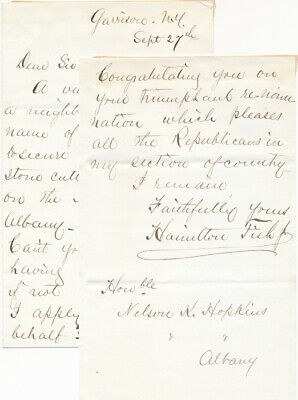 Garrisons. N.Y.
Sept 27th
Dear Sir
A
a neighb
name of
to secure
stone cutt
on the
Albany—
Can't yo
having
if not
I apply
behalf
Congratulating you on
your triumphant re-nomi
nation which pleases
all the Republicans in
my section of country
I remain
Faithfully yours
Hamilton Fish Jr
Honble
Nelson K. Hopkins
" "
Albany